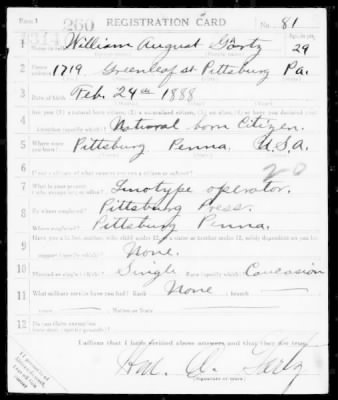 Form 1 260 REGISTRATION CARD No. 81
1 William August Gortz 29
2 1719 Greenleaf st Pittsburg Pa.
3 Date of birth Feb. 24th 1888
4 Are you (1) a natural born citizen, (2) a naturalized citizen, (3) an alien,
Natural born Citizen.
5 Where were you born? Pittsburg Penna. U.S.A.
6 If not a citizen, of what country are you a citizen or subject?
20
7 Linotype operator.
8 By whom employed? Pittsburg Press.
Where employed? Pittsburg Penna.
9 Have you a father, mother, wife, child under 12, or a sister or brother under 12, solely dependent on you for
support (specify which)? None.
10 Married or single (which)? Single Race (specify which)? Caucasion
11 What military service have you had? Rank None branch
years Nation or State
12 Do you claim exemption
from draft (specify grounds)?
I affirm that I have verified above answers and that they are true.
Wm. A. Gortz
(Signature or mark)